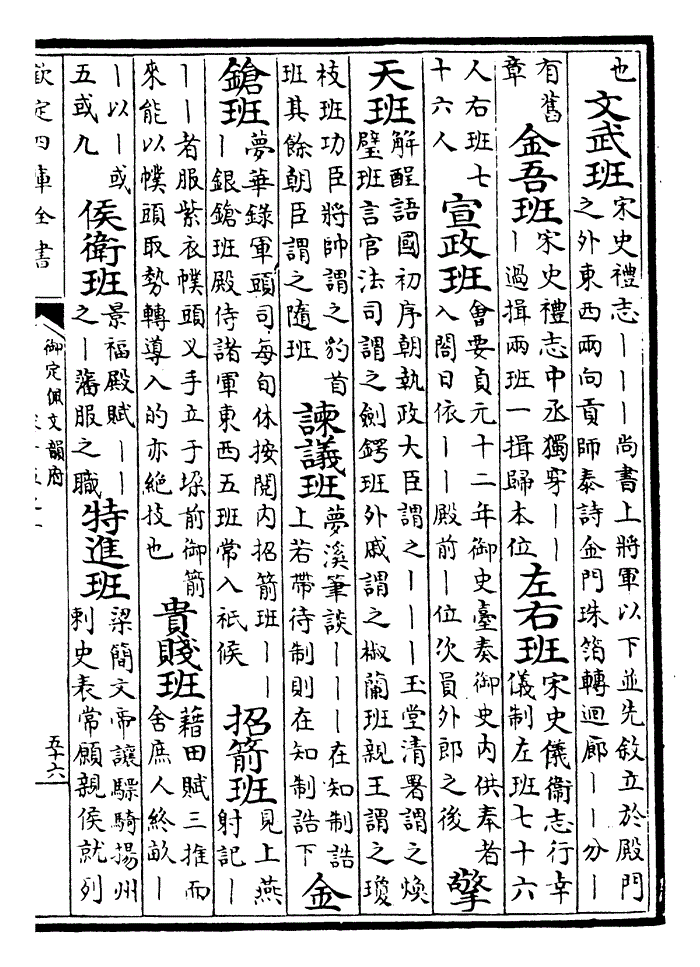 也文武班宋史禮志丨丨丨尚書上將軍以下並先敘立於殿門
之外東西兩向貢師泰詩金門珠箔轉迴廊丨丨分丨
有舊
章金吾班宋史禮志中丞獨穿丨丨
丨過揖兩班一揖歸本位左右班宋史儀衞志行幸
儀制左班七十六
人右班七
十六人宣政班會要貞元十二年御史臺奏御史內供奉者
入閤日依丨丨殿前丨位次員外郎之後擎
天班解酲語國初序朝執政大臣謂之丨丨丨玉堂清署謂之煥
璧班言官法司謂之劍鍔班外戚謂之椒蘭班親王謂之瓊
枝班功臣將帥謂之豹首
班其餘朝臣謂之隨班諫議班夢溪筆談丨丨丨在知制誥
上若帶待制則在知制誥下金
鎗班夢華錄軍頭司每旬休按閱內招箭班丨丨
丨銀鎗班殿侍諸軍東西五班常入祇候招箭班見上燕
射記丨
丨丨者服紫衣幞頭叉手立于垜前御箭
來能以幞頭取勢轉導入的亦絕技也貴賤班藉田賦三推而
舍庶人終畝丨
丨以丨或
五或九侯衛班景福殿賦丨丨
之丨藩服之職特進班梁簡文帝讓驃騎揚州
刺史表常願親侯就列
欽定四庫全書
御定佩文韻府
五十六